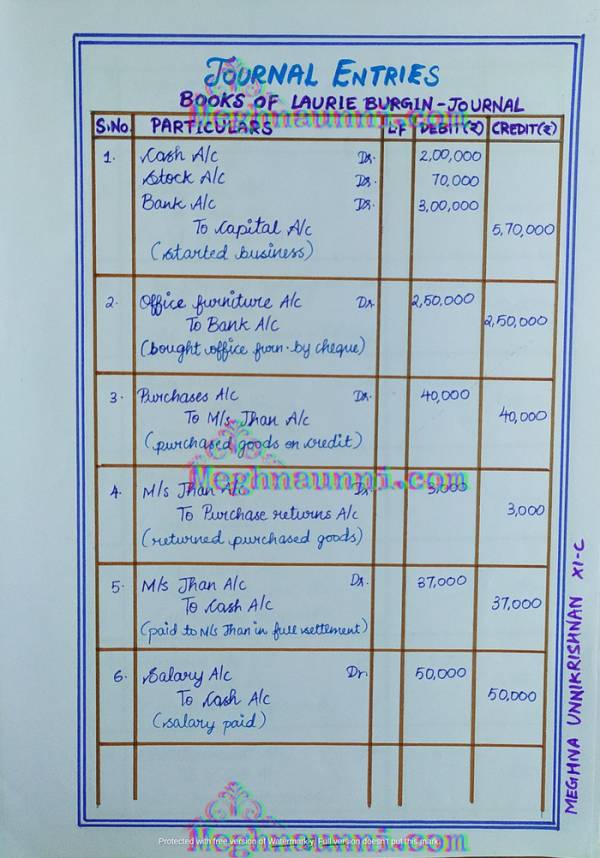 JOURNAL ENTRIES
BOOKS OF LAURIE BURGIN-JOURNAL
Meghnaunni.com
S.No. PARTICULARS LF DEBIT(₹) CREDIT(₹)
1. Cash A/c Dr. 2,00,000
Stock A/c Dr. 70,000
Bank A/c Dr. 3,00,000
To Capital A/c 5,70,000
(started business)
2. Office furniture A/c Dr. 2,50,000
To Bank A/c 2,50,000
(bought office furn. by cheque)
3. Purchases A/c Dr. 40,000
To M/s Jhan A/c 40,000
(purchased goods on credit)
Meghnaunni.com
4. M/s Jhan A/c Dr. 3,000
To Purchase returns A/c 3,000
(returned purchased goods)
5. M/s Jhan A/c Dr. 37,000
To Cash A/c 37,000
(paid to M/s Jhan in full settlement)
6. Salary A/c Dr. 50,000
To Cash A/c 50,000
(salary paid)
MEGHNA UNNIKRISHNAN XI-C
Meghnaunni.com
Protected with free version of Watermarkly. Full version doesn't put this mark.